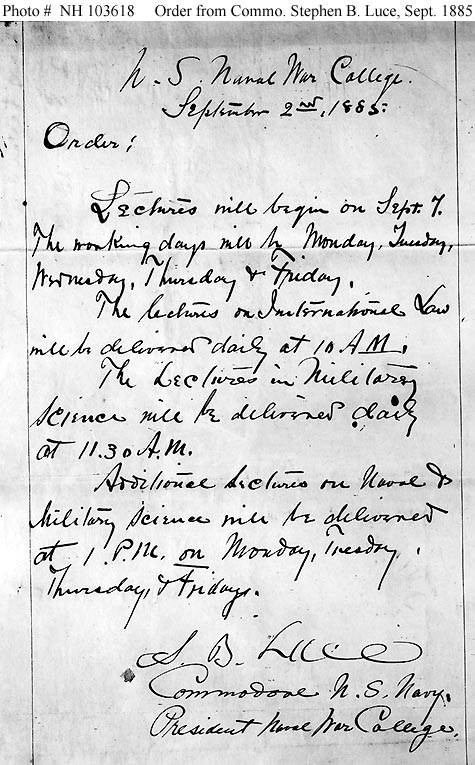 Photo # NH 103618 Order from Commo. Stephen B. Luce, Sept. 1885
U. S. Naval War College.
September 2nd, 1885.
Order;
Lectures will begin on Sept. 7.
The working days will be Monday, Tuesday,
Wednesday, Thursday & Friday.
The lectures on International Law
will be delivered daily at 10 A.M.
The Lectures in Military
Science will be delivered daily
at 11.30 A.M.
Additional Lectures on Naval &
Military Science will be delivered
at 1 P.M. on Monday, Tuesday,
Thursday, & Fridays.
S. B. Luce
Commodore U. S. Navy.
President Naval War College.